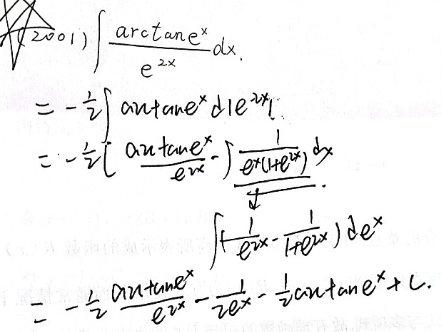 (2001) ∫ arctan e^x / e^{2x} dx.
= -1/2 ∫ arctan e^x d(e^{-2x}).
= -1/2 [ arctan e^x / e^{2x} - ∫ 1 / e^x(1+e^{2x}) dx
∫ ( 1/e^{2x} - 1/(1+e^{2x}) ) de^x
= -1/2 arctan e^x / e^{2x} - 1/2e^x - 1/2 arctan e^x + C.